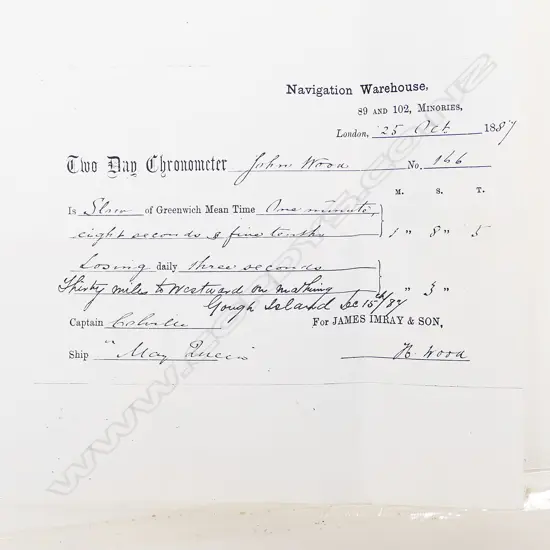 Navigation Warehouse,
89 AND 102, MINORIES,
London, 25 Oct 1887
Two Day Chronometer John Wood No. 166
M. S. T.
Is Slow of Greenwich Mean Time One minute,
eight seconds & five tenths 1 " 8 " 5
Losing daily three seconds
Thirty miles to Westward on making " 3 "
Gough Island Dec 15th/87
Captain Colville For JAMES IMRAY & SON,
Ship "May Queen" H. Wood